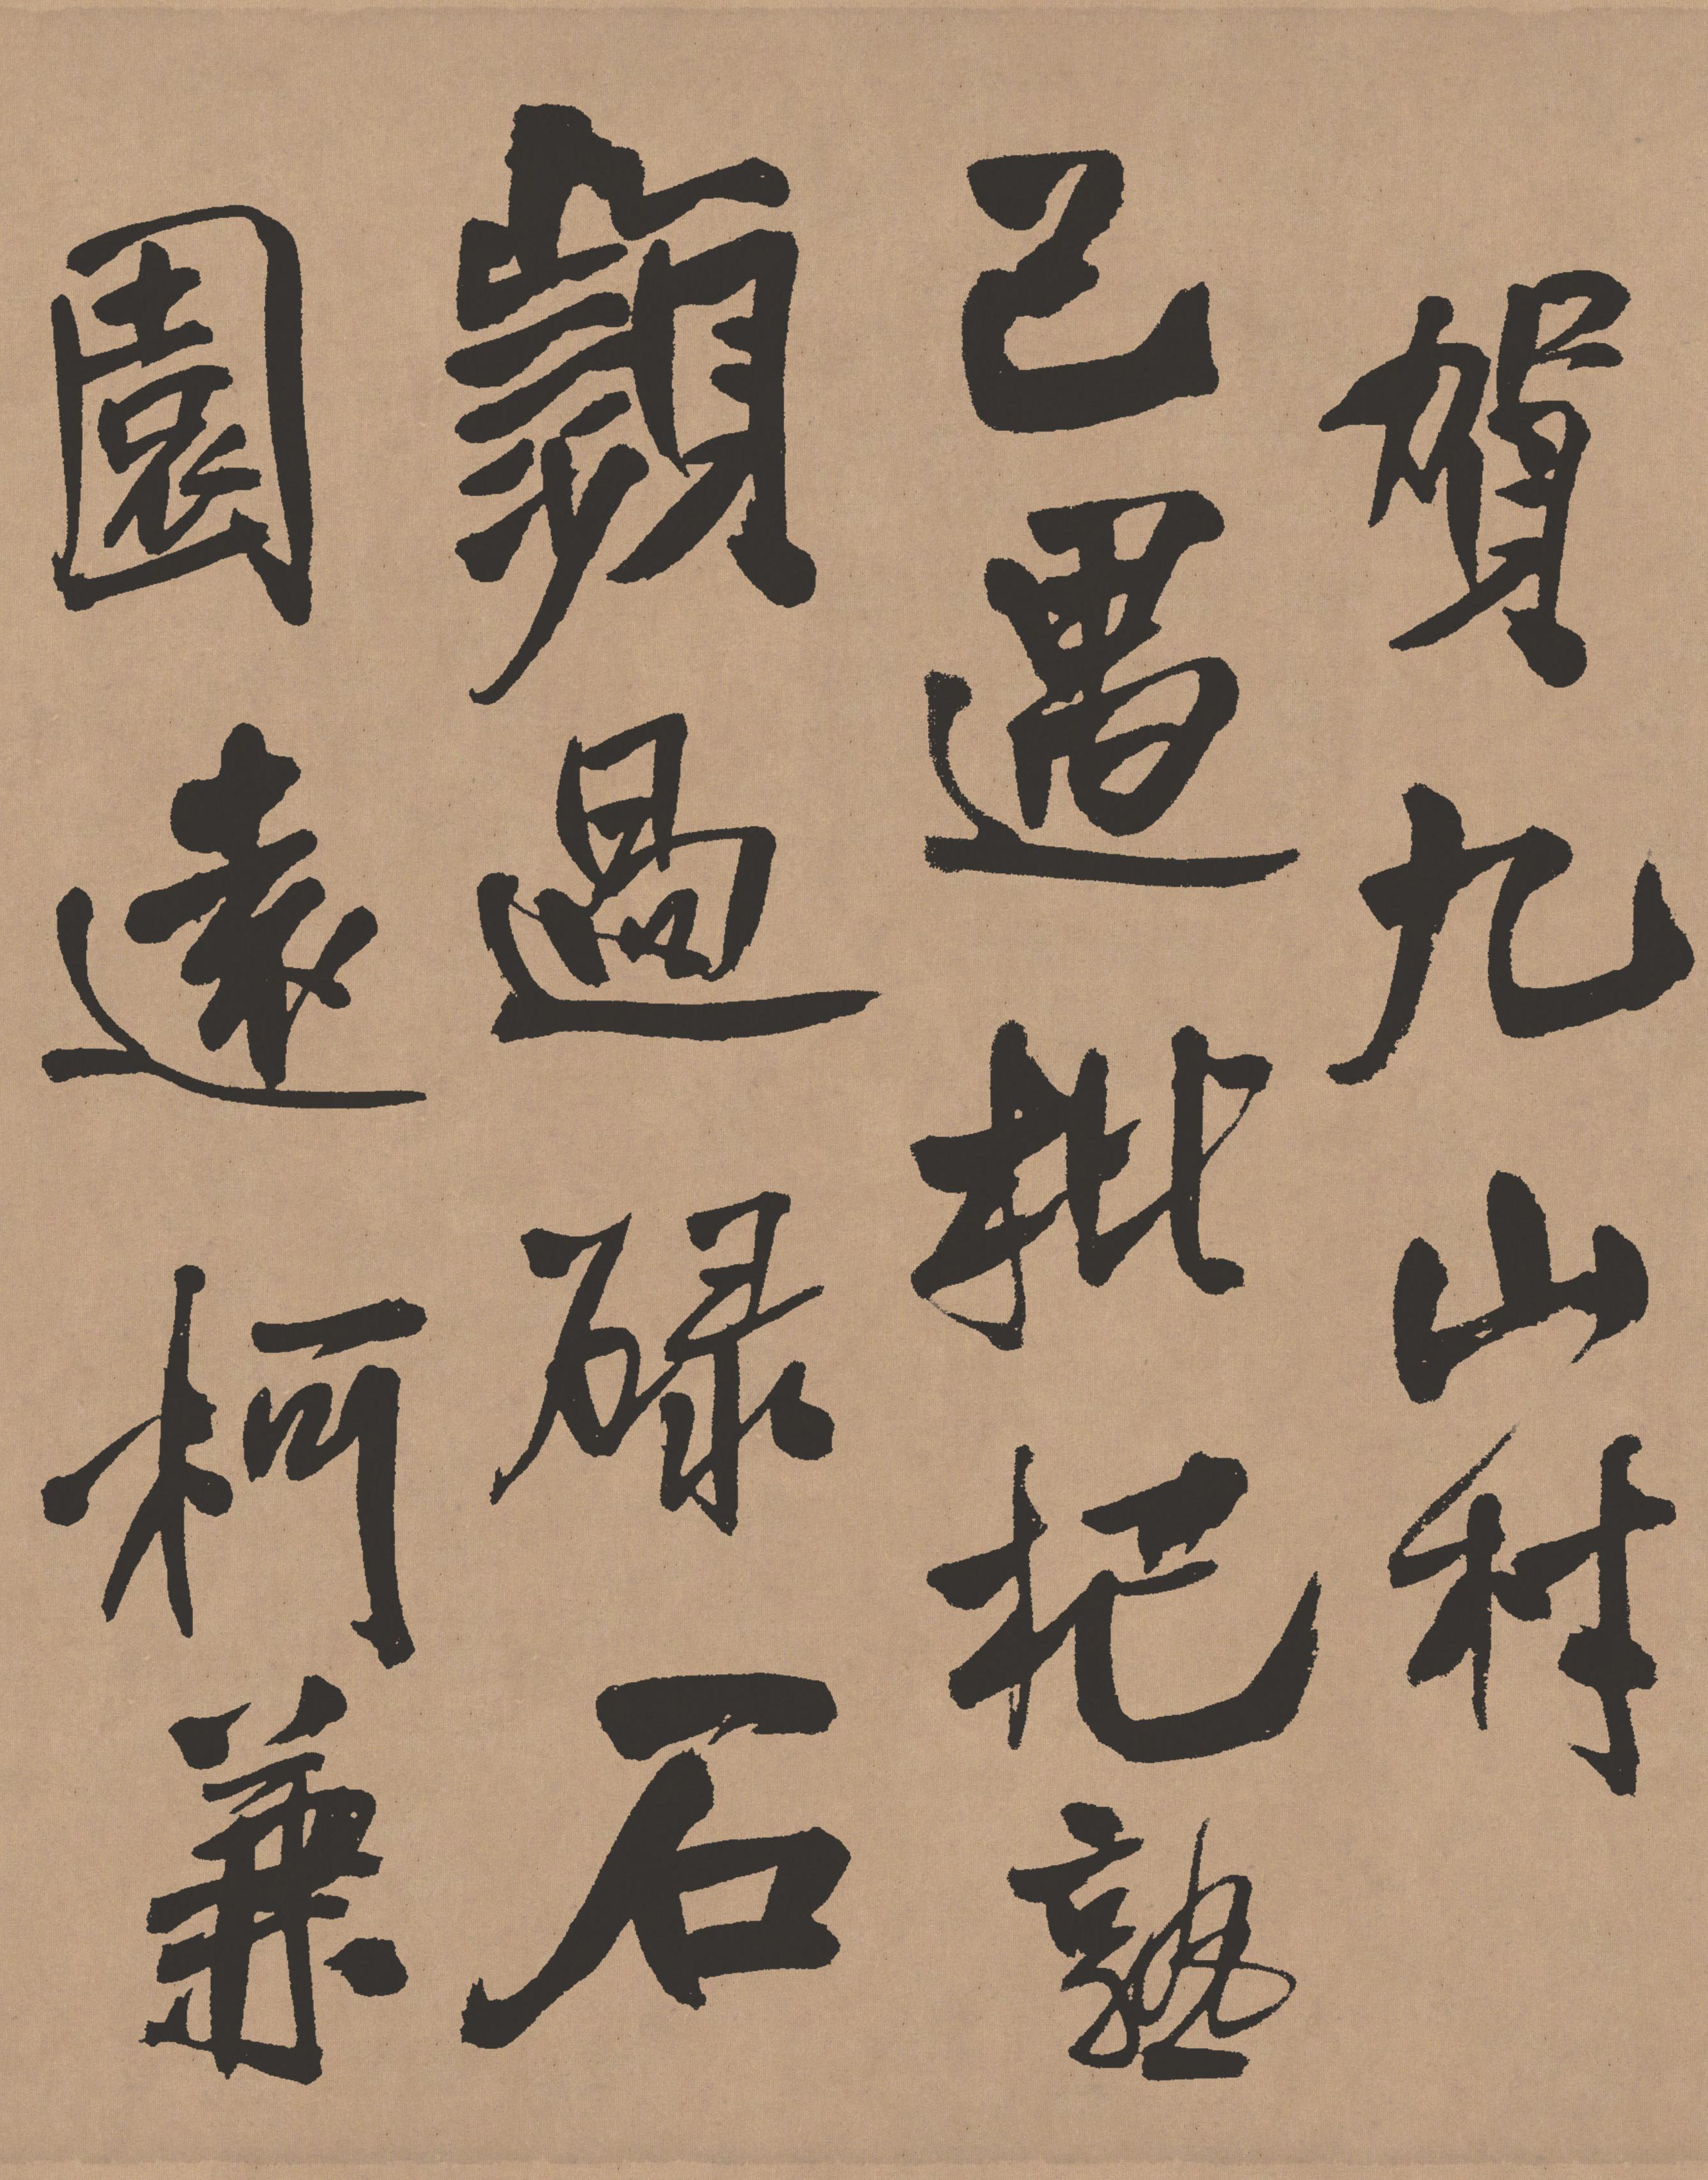 賀九山村
已枇杷熟
過碌石
園遠柯兼